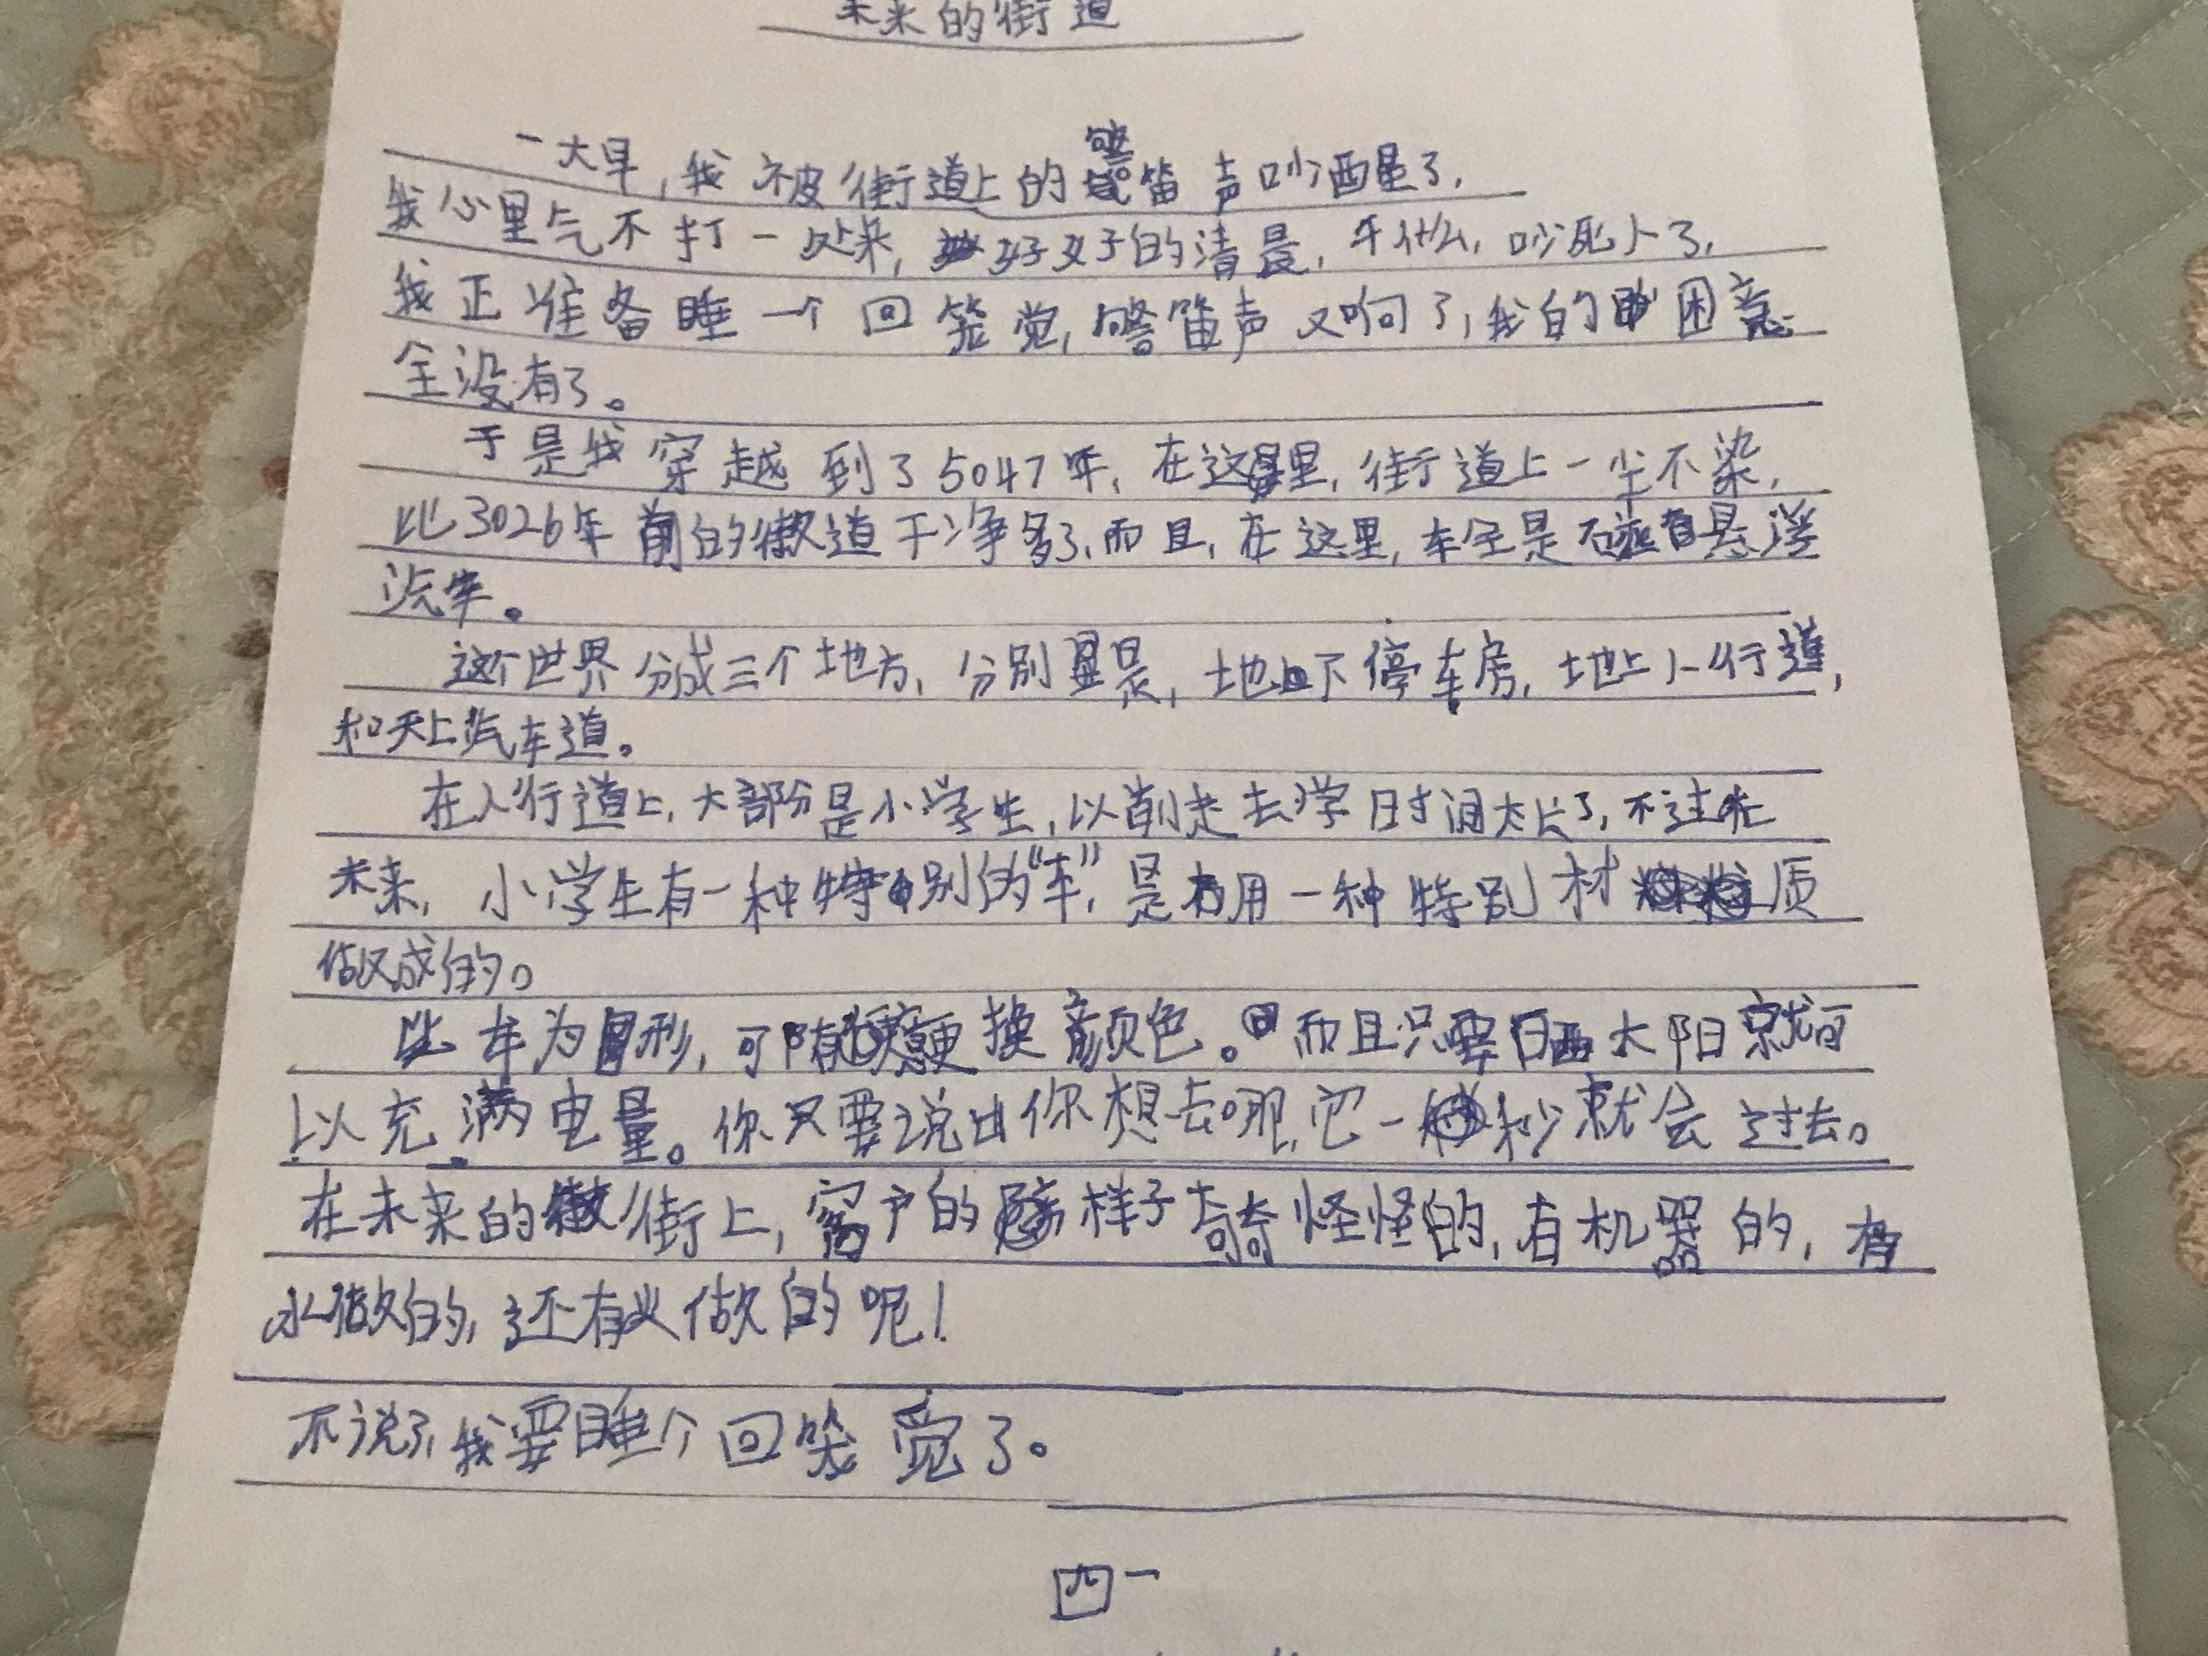 未来的街道
一大早,我被街道上的警笛声吵醒了,
我心里气不打一处来,好好的清晨,干什么,吵死人了,
我正准备睡一个回笼觉,警笛声又响了,我的困意
全没有了。
于是我穿越到了5047年,在这里,街道上一尘不染,
比3026年前的街道干净多了,而且,在这里,车全是磁悬浮
汽车。
这个世界分成三个地方,分别是,地下停车房,地上人行道,
和天上汽车道。
在人行道上,大部分是小学生,以前走去学时间太长了,不过在
未来,小学生有一种特别的“车”,是用一种特别材质
做成的。
此车为形,可随意更换颜色。而且只要晒太阳就可
以充满电量。你只要说出你想去哪,它一秒就会过去。
在未来的街上,窗户的样子奇奇怪怪的,有机器的,有
水做的,还有火做的呢!
不说了,我要睡个回笼觉了。
四一